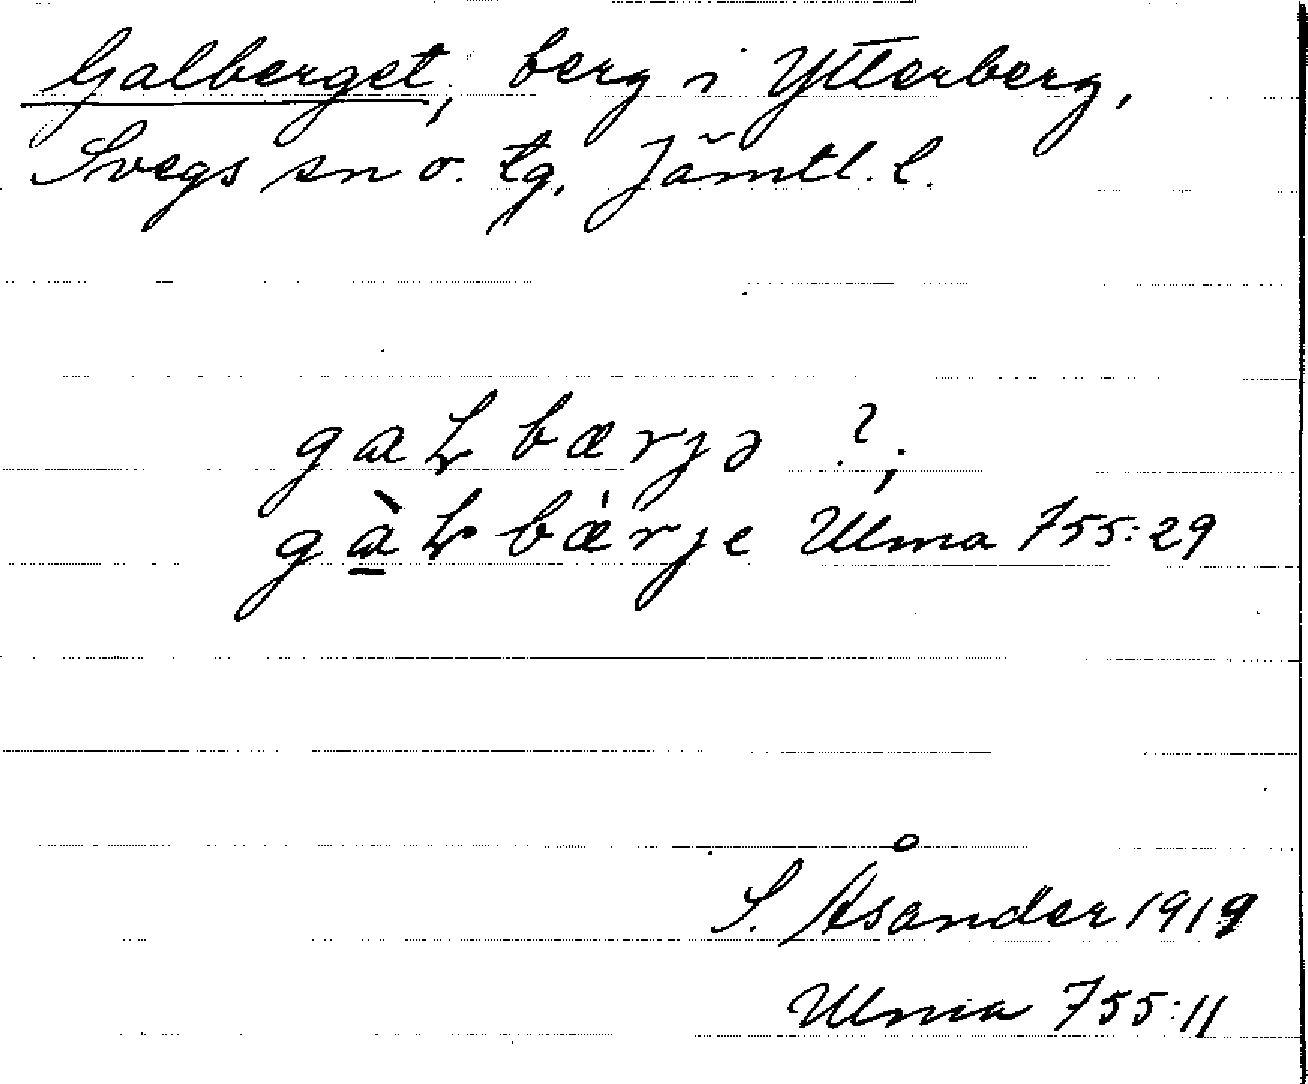 Galberget, berg i Ytterberg,
Svegs sn o. tg. Jämtl. l.
gaꝉbærjə ?;
gàꝉbæ̀rje Ulma 755:29
S. Åsander 1919
Ulma 755:11